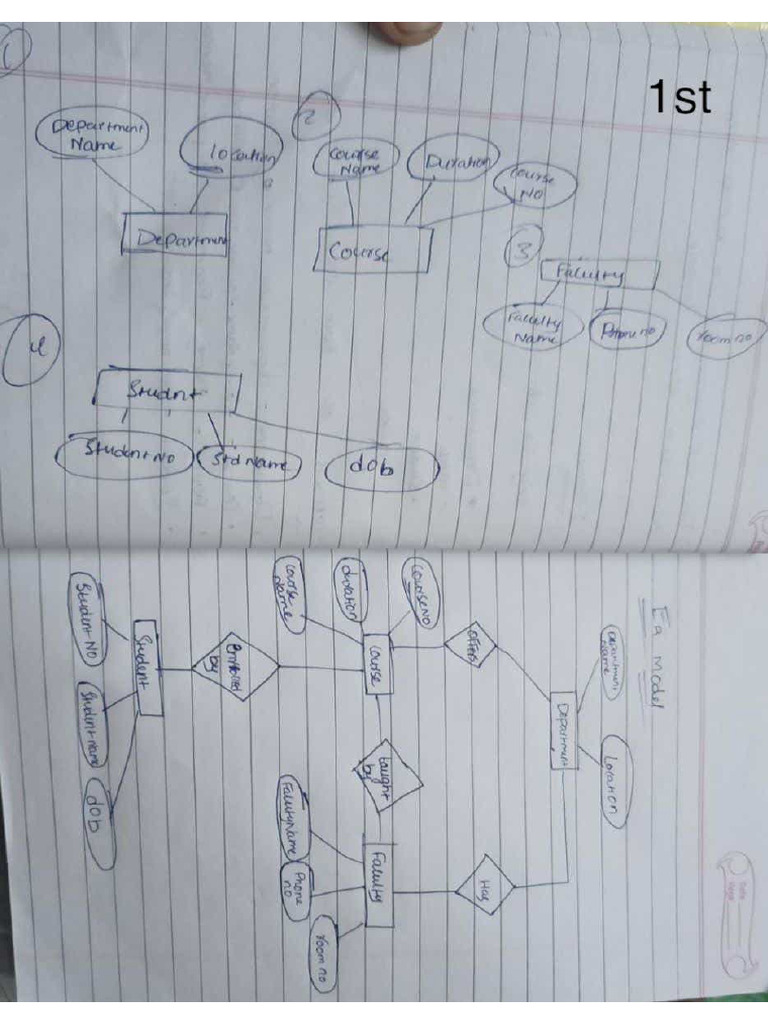 1st
1
Department
Name
location
Department
2
Course
Name
Duration
Course
NO
Course
3
Faculty
Faculty
Name
Phone no
room no
4
Studnt
Student NO
Std Name
dOb
Ea Model
Department
Name
Location
Department
Offers
Has
Course NO
duration
Course
Name
Course
taught
by
Faculty
Faculty Name
Phone
no
room no
Enrolled
by
Student
Student NO
Student name
dOb